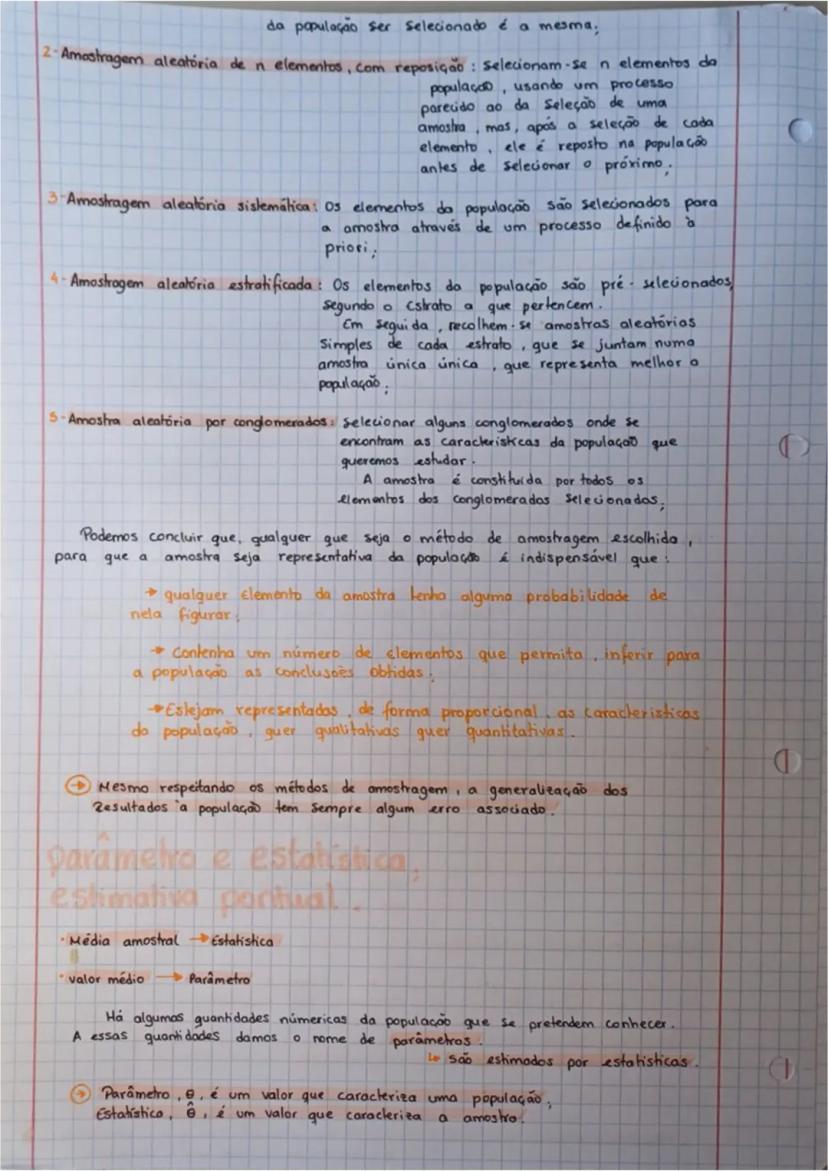 da população ser selecionado é a mesma;
2-Amostragem aleatória de n elementos, com reposição: Selecionam-se n elementos da
população, usando um processo
parecido ao da seleção de uma
amostra, mas, após a seleção de cada
elemento, ele é reposto na população
antes de selecionar o próximo;
3-Amostragem aleatória sistemática: Os elementos da população são selecionados para
a amostra através de um processo definido à
priori;
4-Amostragem aleatória estratificada: Os elementos da população são pré-selecionados,
segundo o Estrato a que pertencem.
Em seguida, recolhem-se amostras aleatórias
simples de cada estrato, que se juntam numa
amostra única única, que representa melhor a
população;
5-Amostra aleatória por conglomerados: Selecionar alguns conglomerados onde se
encontram as características da população que
queremos estudar.
A amostra é constituída por todos os
elementos dos conglomerados selecionados;
Podemos concluir que, qualquer que seja o método de amostragem escolhido,
para que a amostra seja representativa da população é indispensável que:
→ qualquer elemento da amostra tenha alguma probabilidade de
nela figurar;
→ Contenha um número de elementos que permita, inferir para
a população as conclusões obtidas;
→ Estejam representadas, de forma proporcional, as características
da população, quer qualitativas quer quantitativas.
→ Mesmo respeitando os métodos de amostragem, a generalização dos
Resultados à população tem sempre algum erro associado.
parâmetro e estatística,
estimativa pontual.
· Média amostral → Estatística
· valor médio → Parâmetro
Há algumas quantidades númericas da população que se pretendem conhecer.
A essas quantidades damos o nome de parâmetros.
↳ são estimados por estatísticas.
→ Parâmetro, θ, é um valor que caracteriza uma população;
Estatística, θ̂, é um valor que caracteriza a amostra.